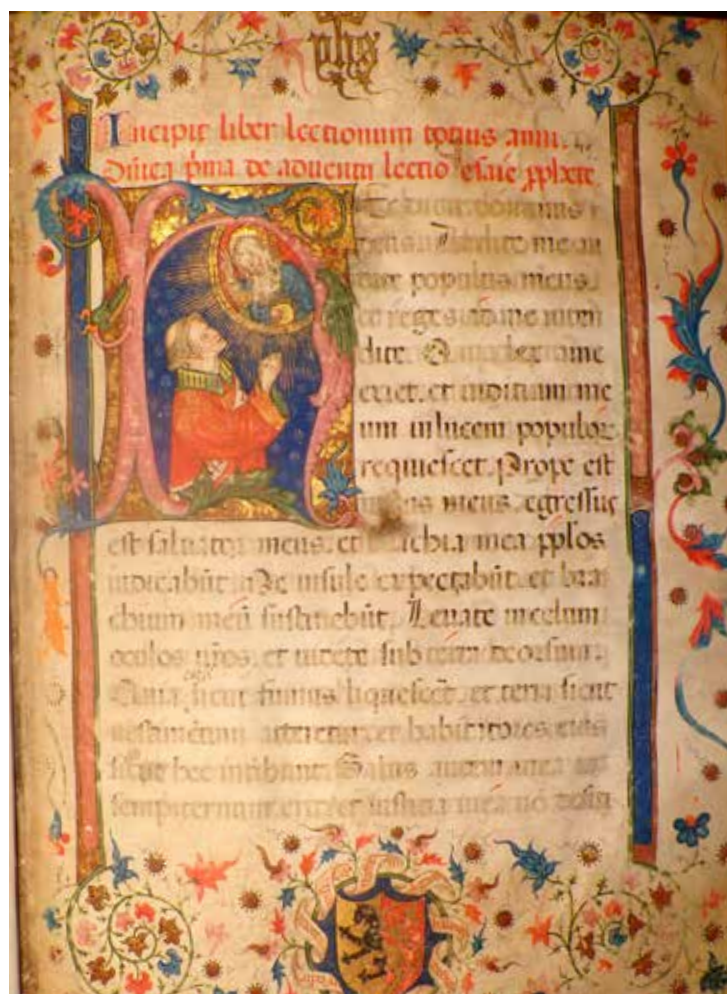 yhs
Incipit liber lectionum totius anni.
Dnica pma de aduentu lectio esaie pphete
dominus
me au
populus meus
et reges
dite. Quia lex a me
exiet. et iudicium me
um in lucem populoꝝ
requiescet. Prope est
iustus meus. egressus
est saluator meus. et brachia mea pplos
iudicabūt. Me insule expectabūt. et bra
chium meū sustinebūt. Leuate in celum
oculos vr̄os. et uidete sub terra deorsum.
Quia celi sicut fumus liquescēt. et terra sicut
uestimētum atteretur. et habitatores eius
sicut hec interibunt. Salus autem mea in
sempiternum erit. et iusticia mea nō